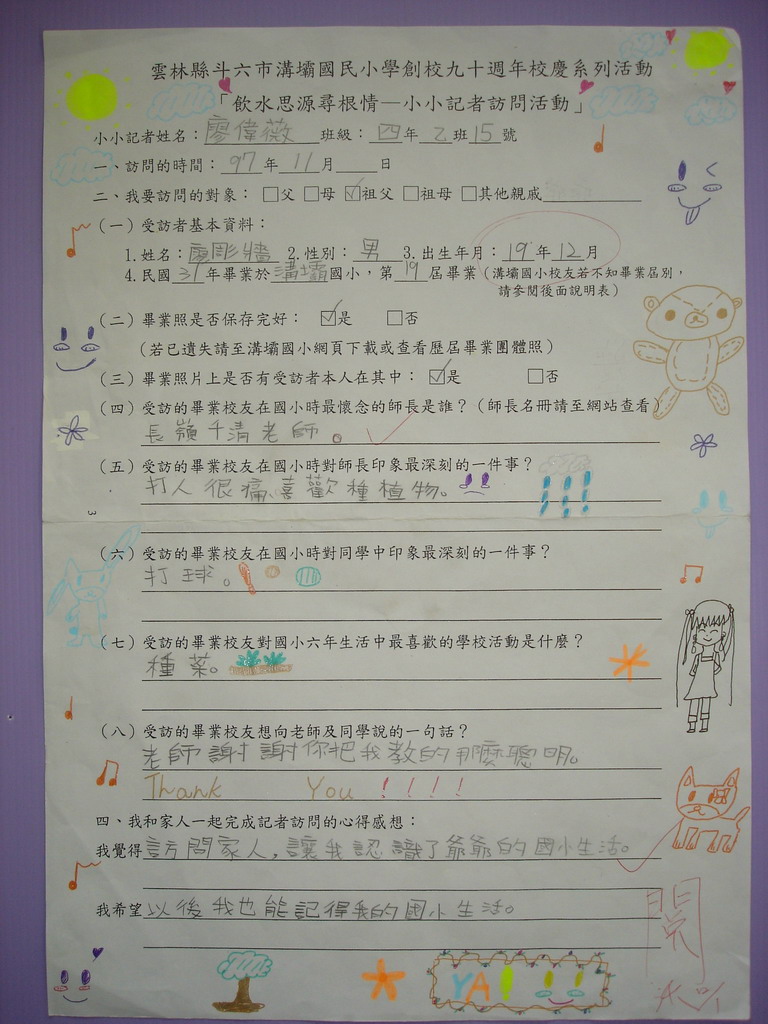 雲林縣斗六市溝壩國民小學創校九十週年校慶系列活動
「飲水思源尋根情—小小記者訪問活動」
小小記者姓名：廖偉薇 班級：四年乙班15號
一、訪問的時間：97年11月 日
二、我要訪問的對象：□父 □母 ☑祖父 □祖母 □其他親戚
（一）受訪者基本資料：
1.姓名：廖彫牆 2.性別：男 3.出生年月：19年12月
4.民國31年畢業於溝壩國小，第19屆畢業（溝壩國小校友若不知畢業屆別，
請參閱後面說明表）
（二）畢業照是否保存完好：☑是 □否
（若已遺失請至溝壩國小網頁下載或查看歷屆畢業團體照）
（三）畢業照片上是否有受訪者本人在其中：☑是 □否
（四）受訪的畢業校友在國小時最懷念的師長是誰？（師長名冊請至網站查看）
長嶺千清老師。
（五）受訪的畢業校友在國小時對師長印象最深刻的一件事？
打人很痛、喜歡種植物。
3
（六）受訪的畢業校友在國小時對同學中印象最深刻的一件事？
打球。
（七）受訪的畢業校友對國小六年生活中最喜歡的學校活動是什麼？
種菜。
（八）受訪的畢業校友想向老師及同學說的一句話？
老師謝謝你把我教的那麼聰明。
Thank You ！！！！
四、我和家人一起完成記者訪問的心得感想：
我覺得訪問家人，讓我認識了爺爺的國小生活。
我希望以後我也能記得我的國小生活。
閱
YA！